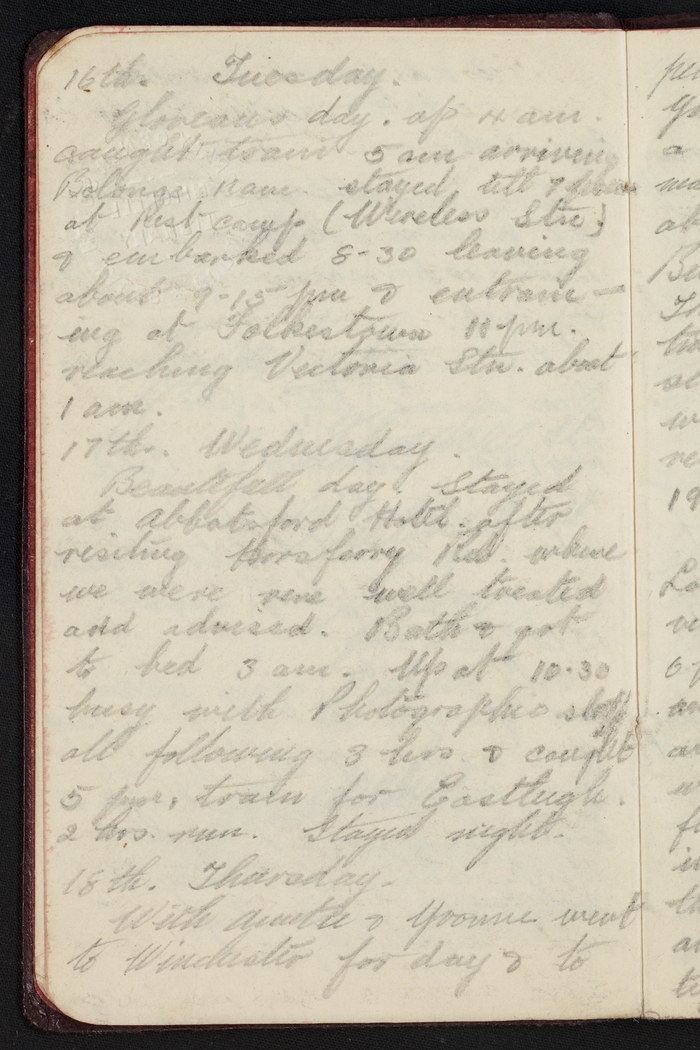 16th. Tuesday.
Glorious day. up 4 am.
caught train 5 am arriving
Bolonge 11 am stayed till 7
at Rest camp (Wireless Stn.)
& embarked 8-30 leaving
about 9-15 pm & entrain-
ing at Folkestown 11 pm.
reaching Victoria Stn. about
1 am.
17th. Wednesday.
Beautifull day. Stayed
at Abbotsford Hotel after
visiting Horsferry Rd. where
we were very well treated
and advised. Bath & got
to bed 3 am. Up at 10-30
busy with Photographic stuff
all following 3 hrs. & caught
5 pm. train for Eastleigh.
2 hrs. run. Stayed night.
18th. Thursday.
With Auntie & Yvonne went
to Winchester for day & to